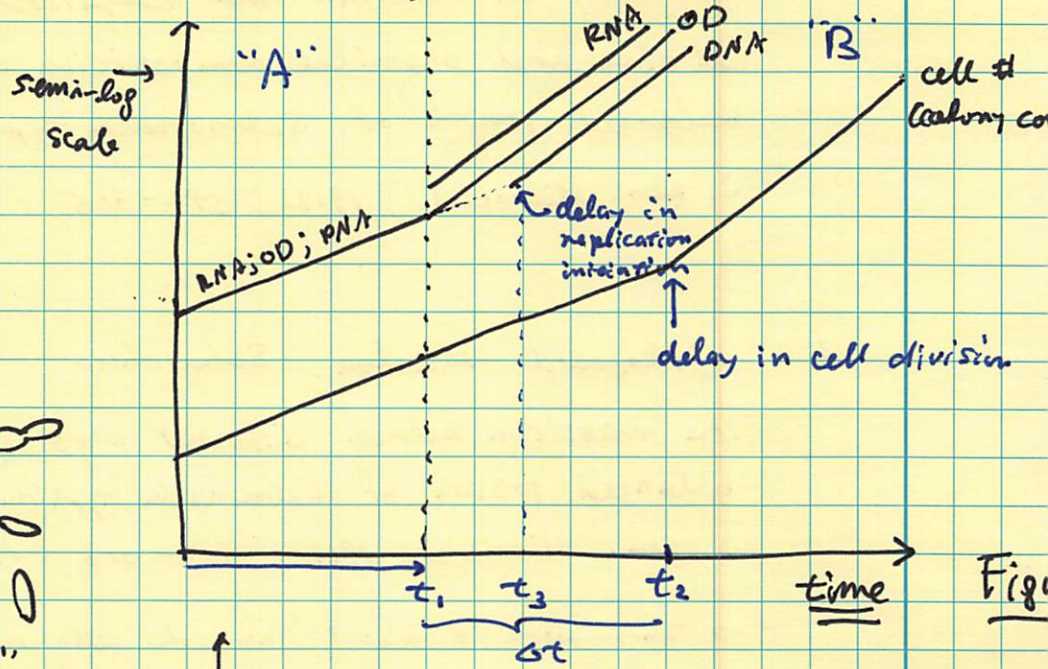 RNA OD
DNA
"A"
"B"
semi-log
scale
cell #
(colony co
RNA; OD; DNA
delay in
replication
initiation
delay in cell division
t1 t3 t2 time
Figu
Δt